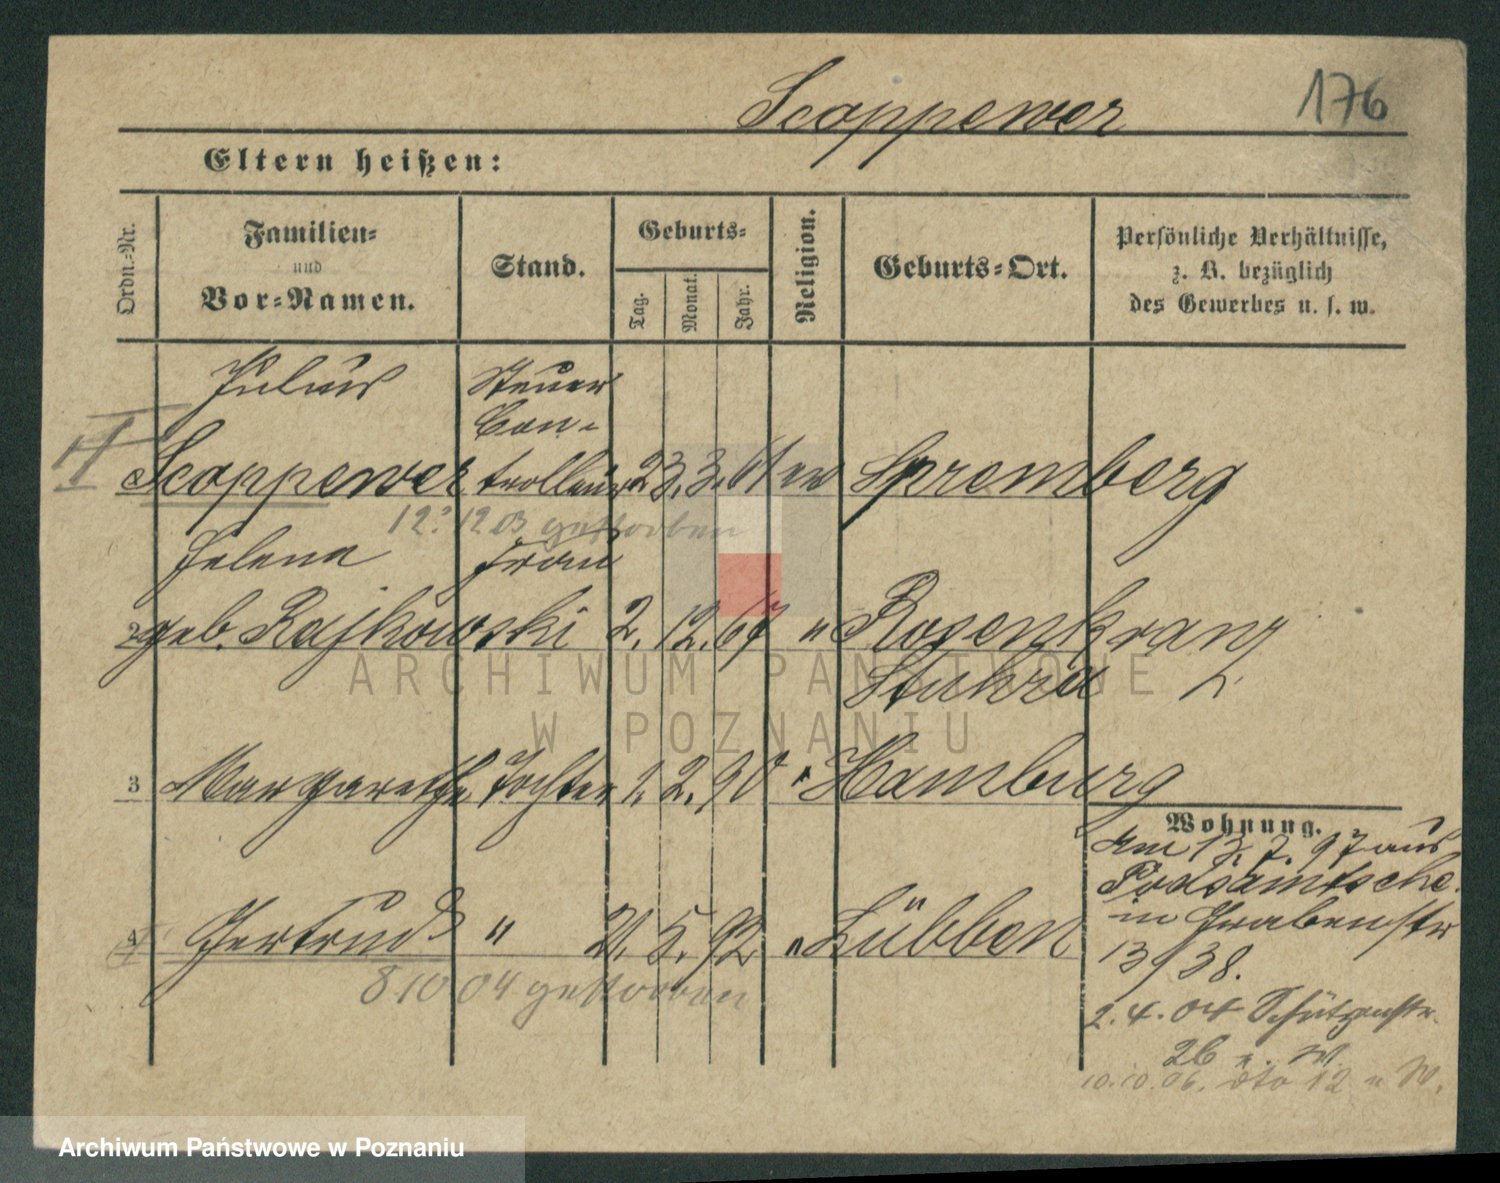 Scoppewer 176
Eltern heißen:
Ordn.-Nr. Familien- und Vor-Namen. Stand. Geburts- Tag. Monat. Jahr. Religion. Geburts-Ort. Persönliche Verhältnisse, z. B. bezüglich des Gewerbes u. s. w.
Julius Steuer
Con-
Scoppewer trolleur 23. 3. 61 ev Spremberg
12. 12 03 gestorben
Helene Frau
2 geb. Rajkowski 2. 12. 67 " Rosenkranz
Stuhm
ARCHIWUM PAŃSTWOWE
W POZNANIU
3 Margarethe Tochter 1. 2. 90 " Hamburg
Wohnung.
Am 13. 7. 97 aus
in Grabenstr
4 Gertrud " 21. 5. 92 " Lübben
13/38.
8 10 04 gestorben
2. 4. 04 Schützenstr.
26 n. W.
10.10.06. dto 12 n W.
Archiwum Państwowe w Poznaniu